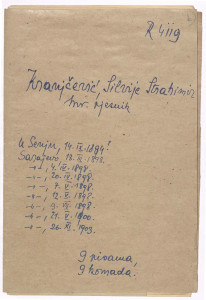 R 4119
Kranjčević Silvije Strahimir
hrv. pjesnik
U Senju, 14. IX. 1894!
Sarajevo 18. II. 1898.
-"-, 4. IV. 1898.
-"-, 20. IV. 1898.
-"-, 7. V. 1898.
-"-, 12. V. 1898.
-"-, 1898.
-"-, 1900.
-"-, 26. III. 1903.
9 pisama,
9 komada.